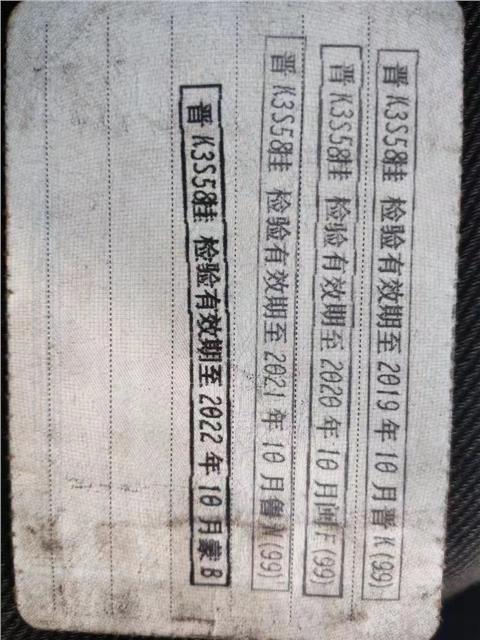 晋K3S58挂 检验有效期至2019年10月晋K(99)
晋K3S58挂 检验有效期至2020年10月闽F(99)
晋K3S58挂 检验有效期至2021年10月鲁N(99)
晋K3S58挂 检验有效期至2022年10月蒙B